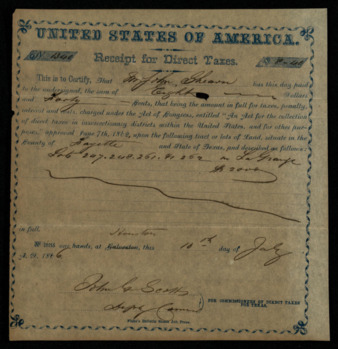 UNITED STATES OF AMERICA.
Receipt for Direct Taxes.
$8.40
This is to Certify, That Mr John Shearn has this day paid
to the undersigned, the sum of Eight Dollars
and Forty Cents, that being the amount in full for taxes, penalty,
interest and costs, charged under the Act of Congress, entitled "An Act for the collection
of direct taxes in insurrectionary districts within the United States, and for other pur-
poses," approved June 7th, 1862, upon the following tract or lots of Land, situate in the
County of Fayette and State of Texas, and described as follows:
Lots 207. 248. 251. 91. 252 in La Grange
$2000
in full.
Witness our hands, at Galveston, this 10th day of July
A. D. 1866
John C Scott
FOR COMMISSIONERS OF DIRECT TAXES
FOR TEXAS.